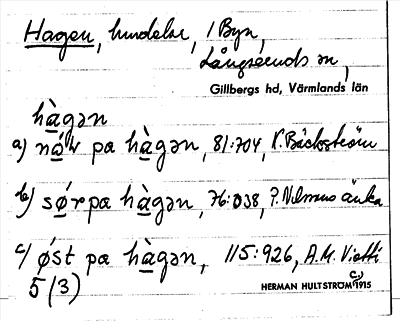 Hagen, hundelse, 1 Byn,
Långseruds sn,
Gillbergs hd, Värmlands län
hàgən
a) nó'r pa hàgən, 81:704, K. Bäckström
b) sǿrpa hàgən, 76:038, P. Nilssons änka
c) ǿst pa hàgən, 115:926, A.M. Vietti
5 (3) HERMAN HULTSTRÖM 1915